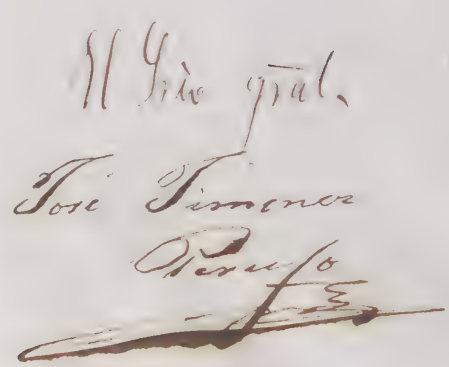 El Srio gral.
José Jimenez
Perujo